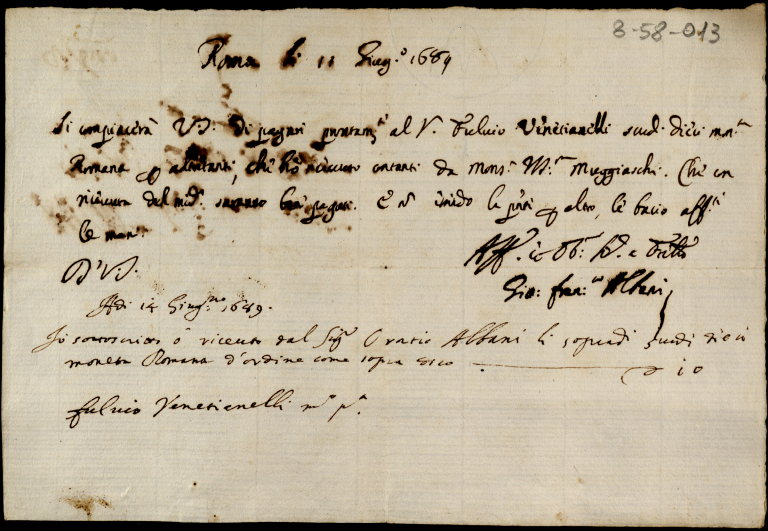 8-58-013
Roma li 11 Giug.º 1689
Si compiacerà V.S. di pagare prontam.te al S.r Fulvio Venetianelli scudi dieci mon.ta
Romana p altrettanti, che hò ricevuto contanti da Mons.r M.r Muggiaschi. Che con
ricevuta del med.º saranno ben pagati. E N
altro, le bacio aff.te
le mani.
D. V.S.
Aff.
Gio: Fran.co Albani
Adi 14 Giug.no 1689.
Io sottoscritto ò ricevuto dal Sig.r Oratio Albani li sopradi scudi dieci
moneta Romana d'ordine come sopra dico 10
Fulvio Venetianelli m.º p.a